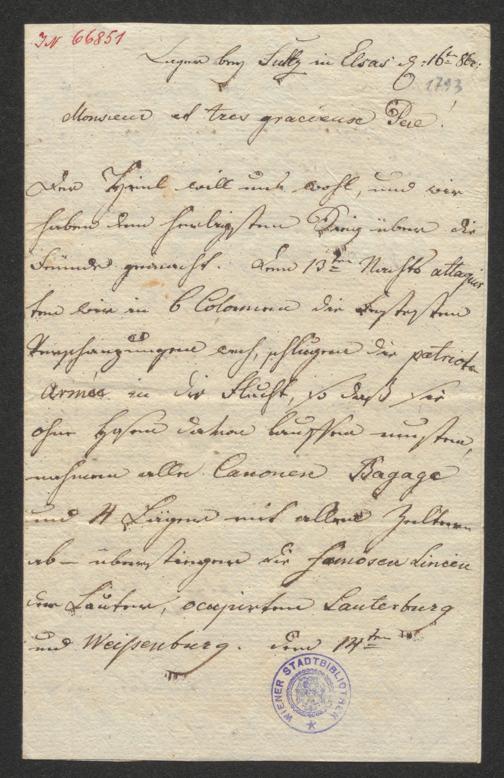 IN 66851
Lager bey Sultz in Elsas d: 16t 8br:
1793
Monsieur et tres gracieuse Pere!
Der Himel will uns wohl, und wir
haben den herligsten Sieg über die
Feinde gemacht. Den 13ten Nachts attaquir
ten wir in 6 Colonen die festesten
Verschanzungen, schlugen die patrioten
Armée in die Flucht, so daß sie
ohne Hosen davon lauffen musten,
nahmen alle Canonen Bagage
und 4 Läger mit allen Zeltern
ab – überstiegen die famosen Linien
der Lauter, occupirten Lauterburg
und Weissenburg. Den 14ten
WIENER STADTBIBLIOTHEK